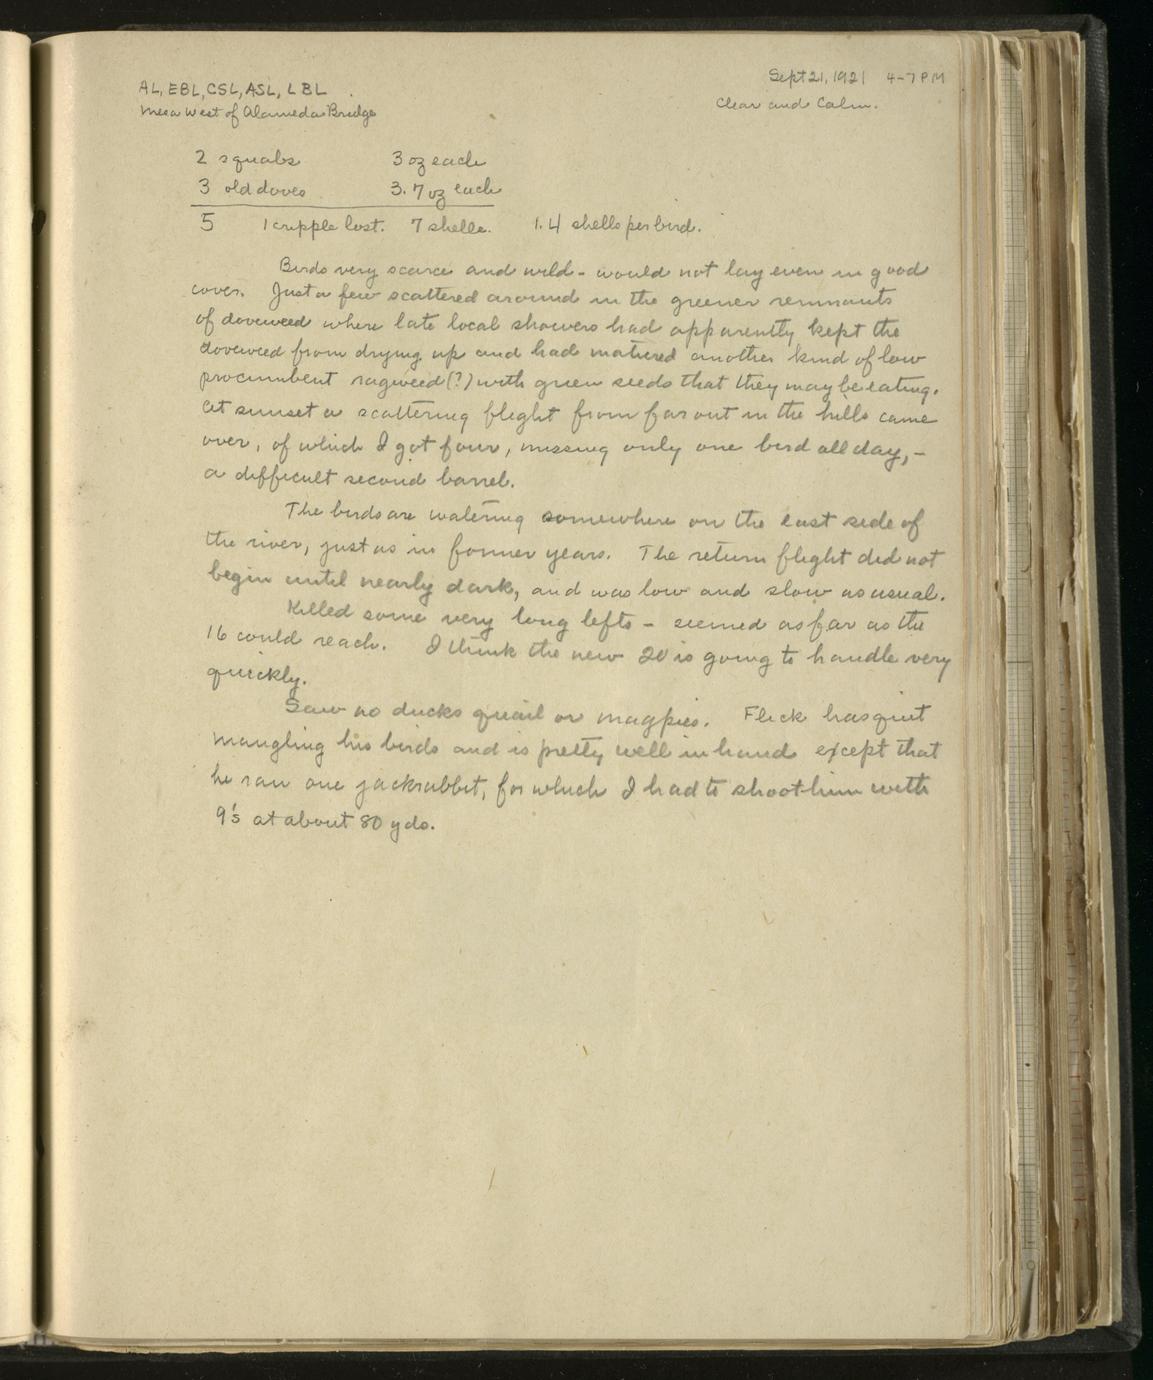 AL, EBL, CSL, ASL, LBL
Sept 21, 1921 4-7 PM
Mesa West of Alameda Bridge
Clear and Calm.
2 squabs 3 oz each
3 old doves 3.7 oz each
5 1 cripple lost. 7 shells. 1.4 shells per bird.
Birds very scarce and wild - would not lay even in good
cover. Just a few scattered around in the greener remnants
of doveweed where late local showers had apparently kept the
doveweed from drying up and had matured another kind of low
procumbent ragweed (?) with green seeds that they may be eating.
At sunset a scattering flight from far out in the hills came
over, of which I got four, missing only one bird all day, -
a difficult second barrel.
The birds are watering somewhere on the east side of
the river, just as in former years. The return flight did not
begin until nearly dark, and was low and slow as usual.
Killed some very long lefts - seemed as far as the
16 could reach. I think the new 20 is going to handle very
quickly.
Saw no ducks quail or magpies. Flick has quit
mangling his birds and is pretty well in hand except that
he ran one jackrabbit, for which I had to shoot him with
9's at about 80 yds.